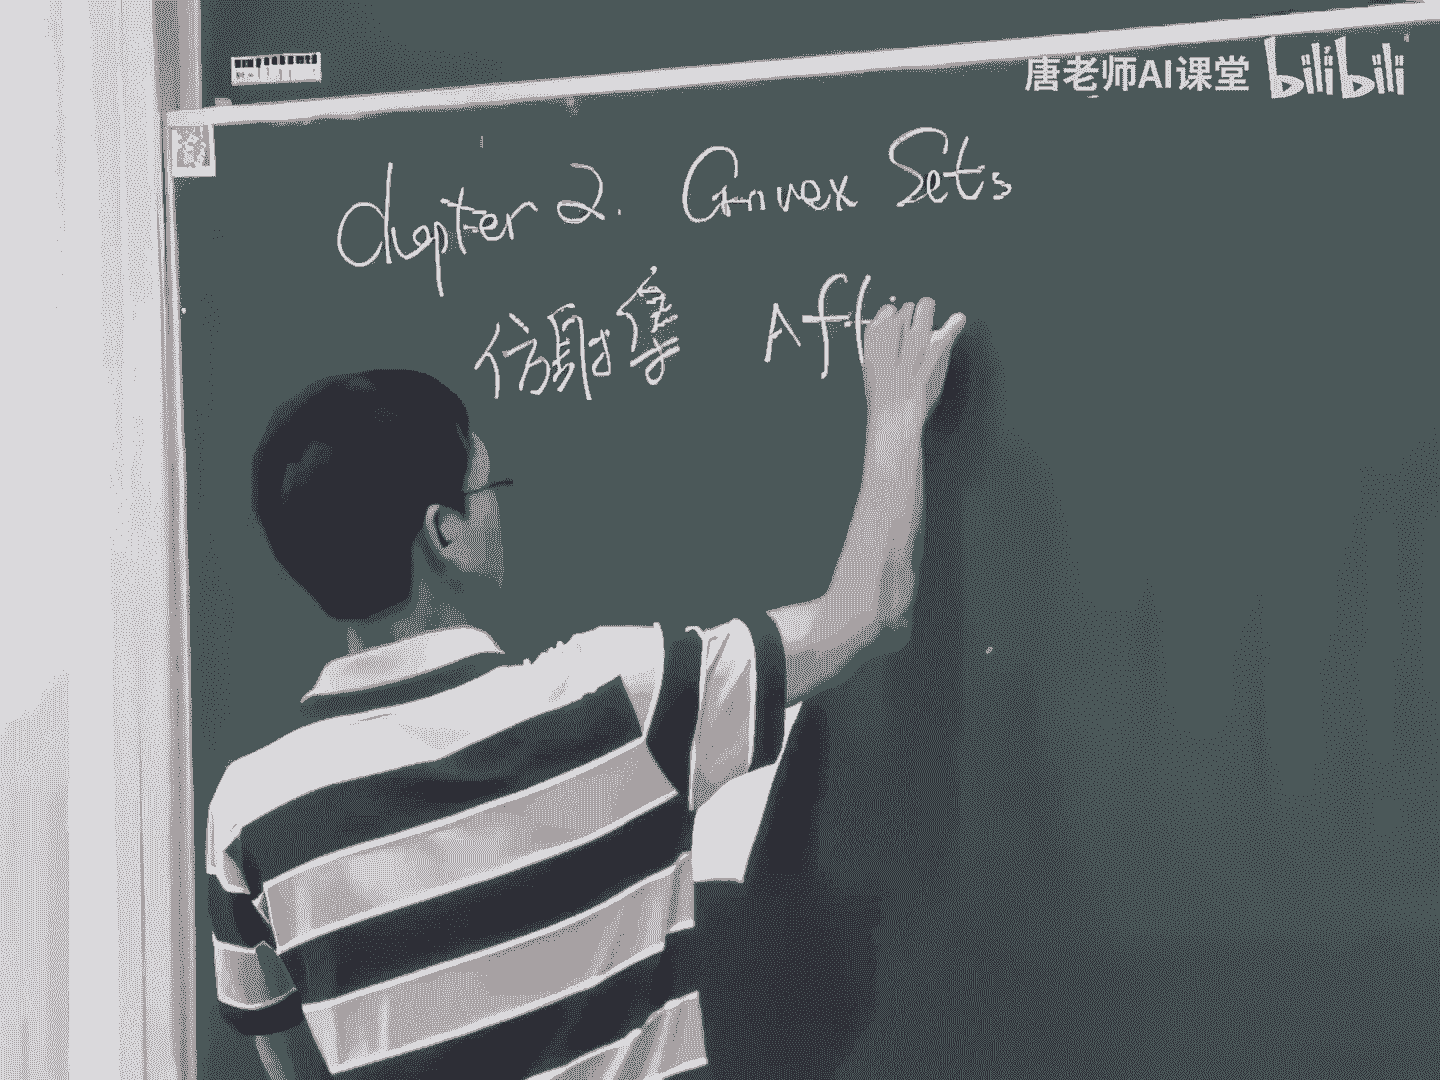 唐老师AI课堂 bilibili
Chapter 2. Convex Sets
仿射集 Aff